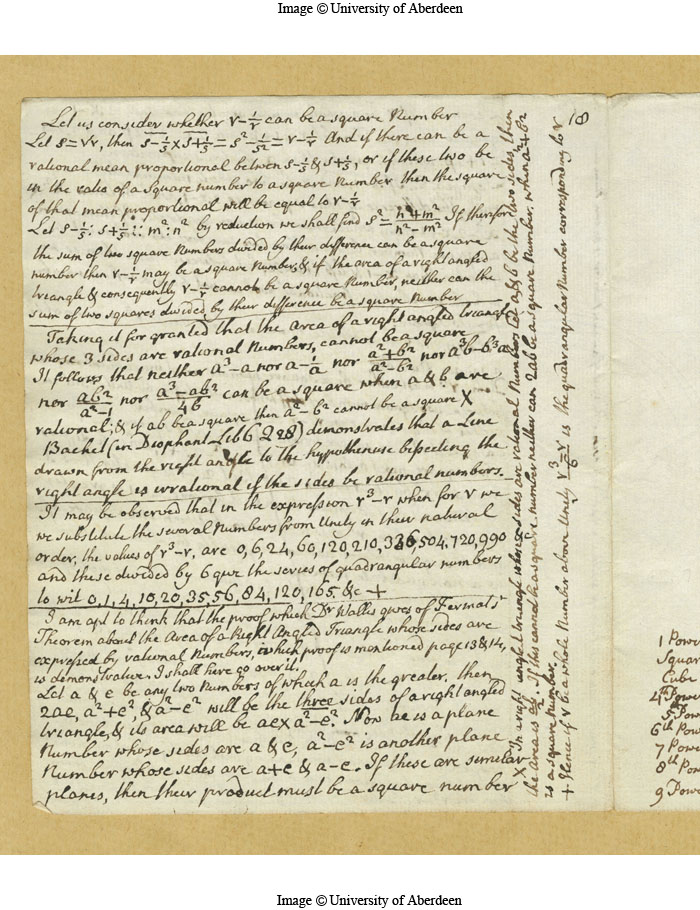 Image © University of Aberdeen
18
Let us consider whether r - 1/r can be a square Number
Let s = √r, then s - 1/s × s + 1/s = s² - 1/s² = r - 1/r And if there can be a
rational mean proportional betwen s - 1/s & s + 1/s, or if these two be
in the ratio of a square number to a square number then the square
of that mean proportional will be equal to r - 1/r
Let s - 1/s : s + 1/s :: m² : n² by reduction we shall find s² = (n² + m²)/(n² - m²) If therfor
the sum of two square Numbers divided by their difference can be a square
number then r - 1/r may be a square Number, & if the area of a right angled
triangle & consequently r - 1/r cannot be a square Number, neither can the
sum of two squares divided by their difference be a square Number
Taking it for granted that the area of a right angled triangle
whose 3 sides are rational Numbers, cannot be a square
It follows that neither a³ - a nor a - 1/a nor (a² + b²)/(a² - b²) nor a³b - b³a
nor ab²/(a² - 1) nor (a³ - ab²)/4b can be a square when a & b are
rational; & if ab be a square then a² - b² cannot be a square X
Bachet (in Diophant Lib 6 228) demonstrates that a Line
drawn from the right angle to the hypothenuse bissecting the
right angle is irrational if the sides be rational numbers.
It may be observed that in the expression r³ - r when for r we
we substitute the several Numbers from Unity in their natural
order, the values of r³ - r, are 0, 6, 24, 60, 120, 210, 336, 504, 720, 990
and these divided by 6 give the series of quadrangular numbers
to wit 0, 1, 4, 10, 20, 35, 56, 84, 120, 165 &c +
I am apt to think that the proof which Dr Wallis gives of Fermats
Theorem about the Area of a Right Angled Triangle whose sides are
expressed by rational Numbers, which proof is mentioned page 13 & 14,
is demonstrative. I shall here go over it.
Let a & e be any two Numbers of which a is the greater, then
2ae, a² + e², & a² - e² will be the three sides of a right angled
triangle, & its area will be ae × a² - e². Now ae is a plane
Number whose sides are a & e, a² - e² is another plane
Number whose sides are a + e & a - e. If these are similar
planes, then their product must be a square number
X In a right angled triangle whose sides are rational Numbers let a & b be the two sides, then
the Area is ab/2. If this cannot be a square number neither can 2ab be a square Number, when a² + b²
is a square Number.
+ Hence if r be a whole Number above Unity (r³ - r)/6 is the quadrangular Number corresponding to r
1 Powe
Squar
Cube
4th Powe
5 Pow
6th Pow
7 Powe
8th Pow
9 Powe
Image © University of Aberdeen